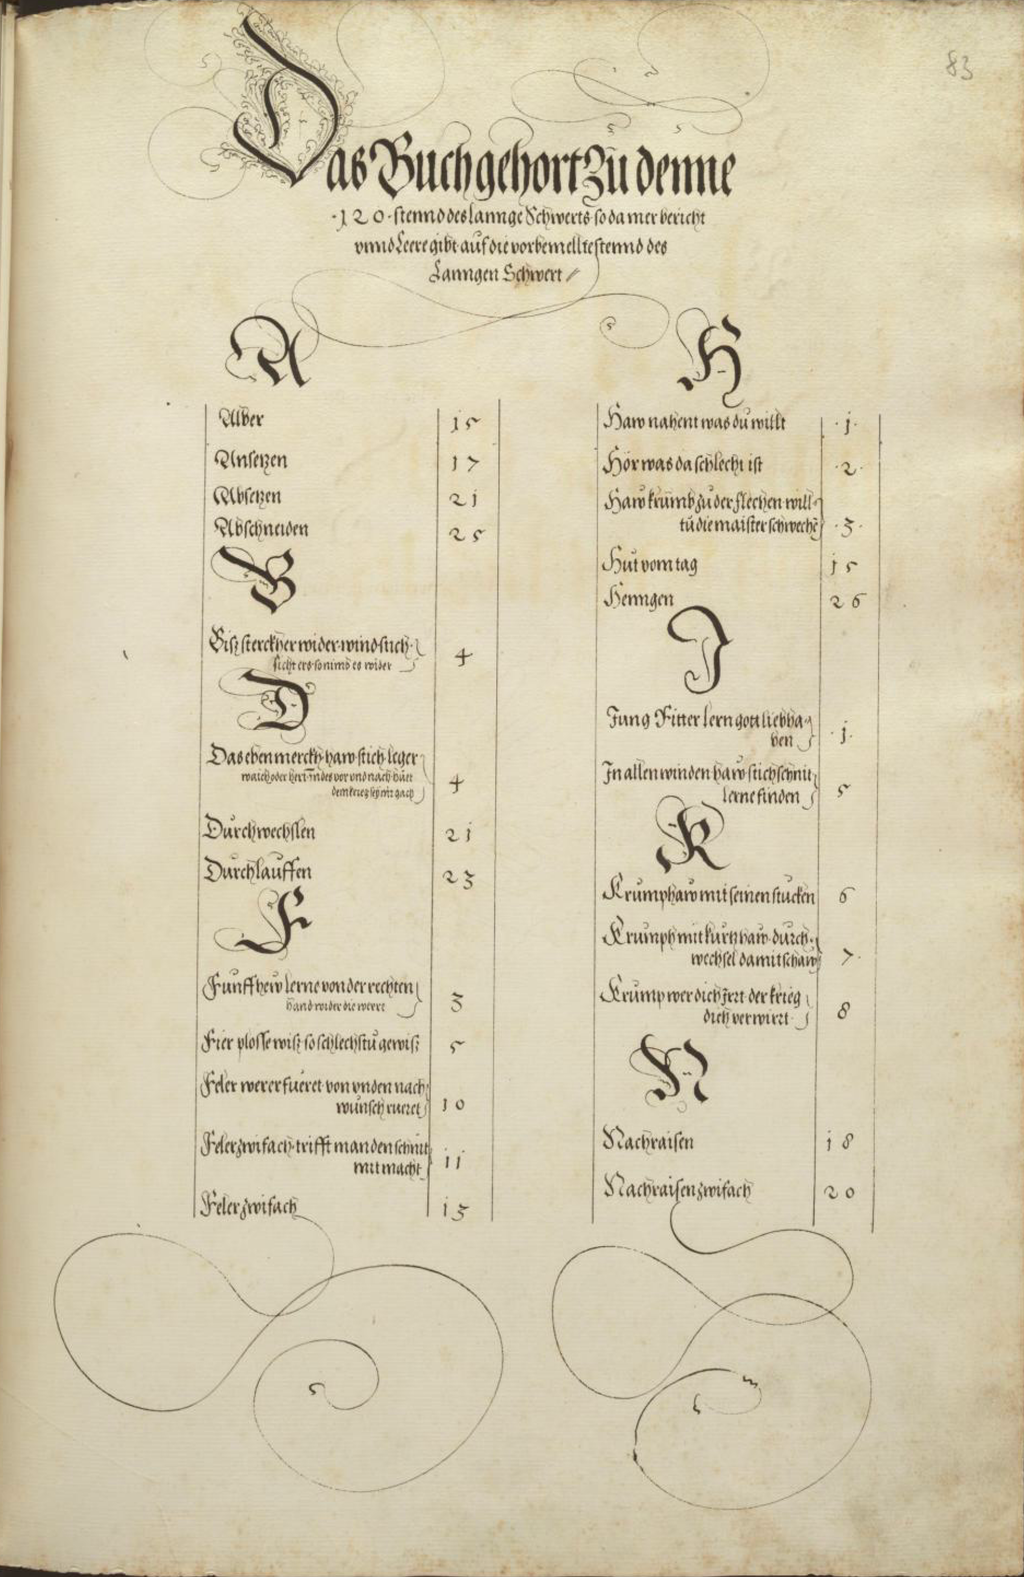 83
Das Buch gehort Zu denne
·120· stennd des lannge Schwerts so da mer bericht
vnnd Leere gibt auf die vorbemellte stennd des
Lanngen Schwert //
A
Alber 15
Ansetzen 17
Absetzen 21
Abschneiden 25
B
Bisz sterckher wider wind stich
sicht ers so nimb es nider 4
D
Das eben merckh haw stich leger
waich oder hert Indes vor vnd nach
dem krieg sey nit gach 4
Durchwechslen 21
Durchlauffen 23
F
Funff hew lerne von der rechten
hand wider die werre 3
Fier plosse wisz so schlechstu gewisz 5
Feler wer er fueret von vnden nach
wunsch rueret 10
Feler zwifach trifft man den schnit
mit macht 11
Feler zwifach 13
H
Haw nahent was du willt ·1·
Hör was da schlecht ist ·2·
Haw krumb zu der flechen will
tu die maister schweche ·3·
Hut vom tag 15
Henngen 26
J
Jung Ritter lern gott liebha
ben ·1·
In allen winden haw stich schnit
lerne finden 5
K
Krumphaw mit seinen stucken 6
Krumph mit kurtz haw durch
wechsel damit schaw 7
Krump wer dich Irrt der krieg
dich verwirrt 8
N
Nachraisen 18
Nachraisen zwifach 20